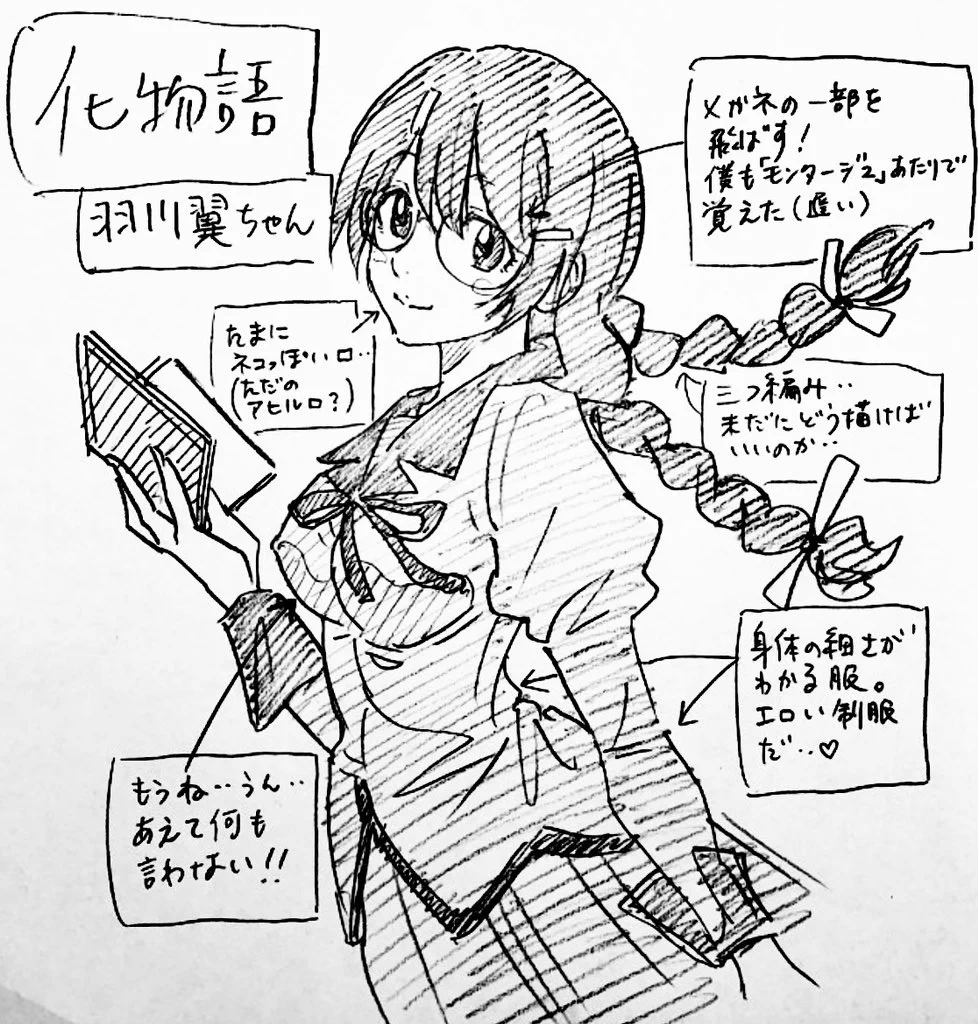 化物語
羽川翼ちゃん
メガネの一部を
飛ばす!
僕も「モンタージュ」あたりで
覚えた(遅い)
たまに
ネコっぽい口‥
(ただの
アヒル口?)
三つ編み‥
未だにどう描けば
いいのか‥
身体の細さが
わかる服。
エロい制服
だ‥♡
もうね‥うん‥
あえて何も
言わない!!